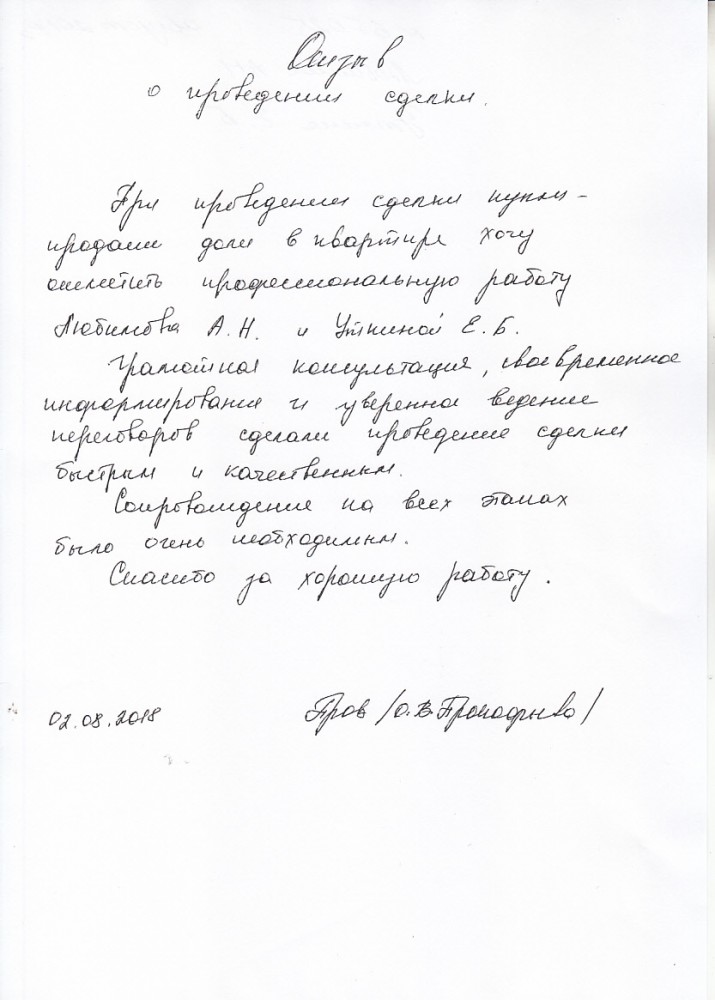 Отзыв
о проведении сделки.
При проведении сделки купли-
продажи доли в квартире хочу
отметить профессиональную работу
Любимова А.Н. и Уткиной Е.Б.
Грамотная консультация, своевременное
информирование и уверенное ведение
переговоров сделали проведение сделки
быстрым и качественным.
Сопровождение на всех этапах
было очень необходимым.
Спасибо за хорошую работу.
02.08.2018 Пров /О.В.Прокофьева/